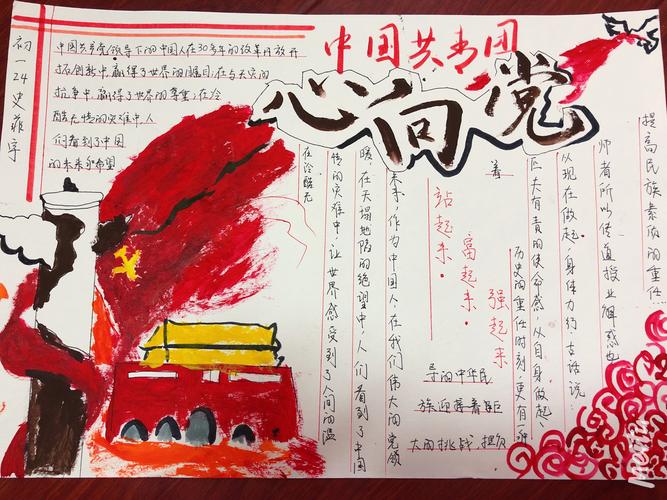 初一24史菲宇
中国共青团
心向党
中国共产党领导下的中国人在30多年的改革开放开
拓创新中,赢得了世界的瞩目,在与天灾的
抗争中,赢得了世界的尊重,在冷
酷无情的灾难中,人
们看到了中国
的未来和希望
在冷酷无
情的灾难中,让世界感受到了人间的温
暖,在天塌地陷的绝望中,人们看到了中国
未来,作为中国人,在我们伟大的党领
导的中华民
族迎接着巨
大的挑战,
站起来·
富起来·
强起来
着
历史的重任时刻,更有一种
巨大有责的使命感,从自身做起、
从现在做起,身体力行,古话说:
师者所以传道授业解惑也
提高民族素质的重任